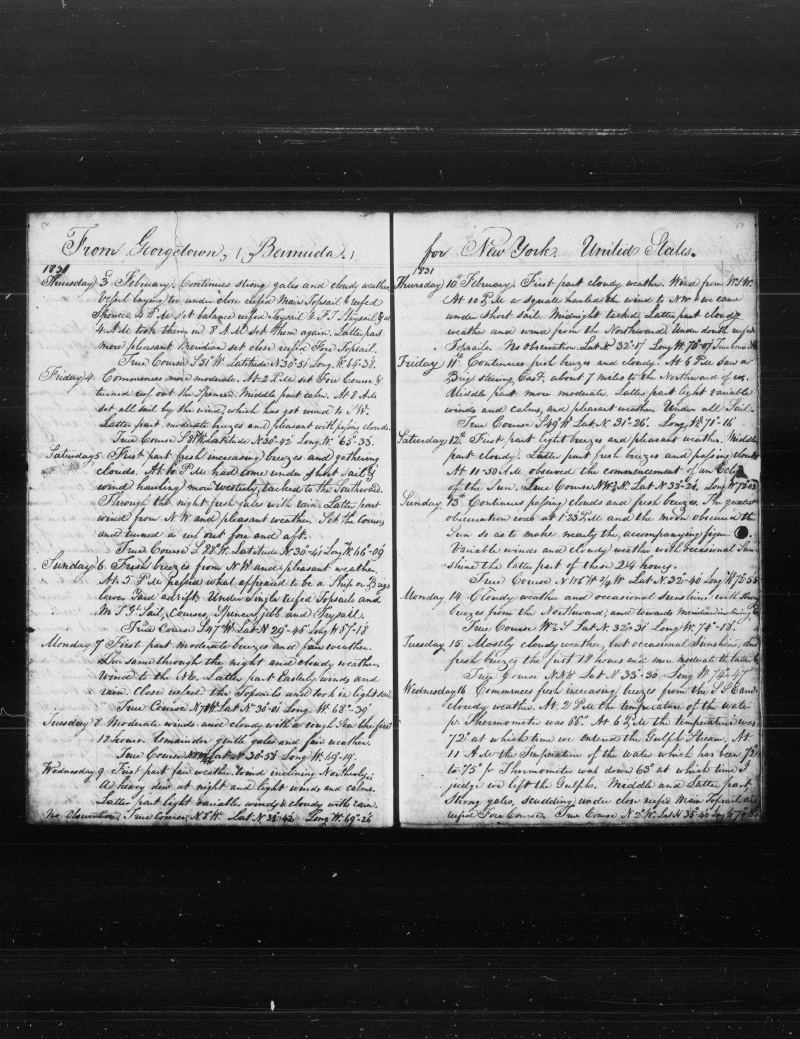 From Georgetown, (Bermuda.)
1831
Thursday 3 February. Continues strong gales and cloudy weather
Vessel laying to under close reefed Main Topsail & reefed
Spencer. 2 P.M set balance reefed Trysail & F.T. Staysail & at
4 A.M took them in 8 A.M. Set them again. Latter part
more pleasant. Meridian set close reefed Fore Topsail.
True Course S 51° W. Latitude N 30-51 Long. W. 64-38.
Friday 4 Commences more moderate. At 2 P.M set Fore Course &
turned reef out the Spencer. Middle part calm. At 8 A.M
set all sail by the wind, which has got round to S W.
Latter part moderate breezes and pleasant with passing clouds.
True Course S 81° W Latitude N 30-42 Long W. 65-33.
Saturday 5 First part fresh increasing breezes and gathering
clouds. At 10 P.M had come under short sail &
wind hauling more westerly, tacked to the Southward.
Through the night fresh gales with rain. Latter part
wind from N W and pleasant weather. Set the courses
and turned a reef out fore and aft.
True Course S 88° W. Latitude N 30-41 Long W. 66-09
Sunday 6 Fresh breezes from N W and pleasant weather.
At 5 P.M passed what appeared to be a Ship or Brigs
lower Yard adrift. Under single reefed Topsails and
M T G Sail, Courses, Spencer, jibb and Trysail.
True Course S 47° W Lat N 29-45 Long W 67-18
Monday 7 First part moderate breezes and fair weather.
The same through the night and cloudy weather
Wind to the Ne. Latter part Easterly winds and
rain. Close reefed the Topsails and took in light sails.
True Course N 78° W Lat N 30-01 Long. W. 68-39
Tuesday 8 Moderate winds and cloudy with a rough Sea the first
12 hours. Remainder gentle gales and fair weather.
True Course Lat N 30-58 Long W. 69-19.
Wednesday 9 First part fair weather. Wind inclining Northerly;
A heavy dew at night and light winds and calms.
Latter part light variable winds & cloudy with rain.
No Observation. True Course, N 8° W Lat N 31-42 Long W. 69-26
for New York United States.
1831
Thursday 10th February. First part cloudy weather. Wind from W.S.W.
At 10 P.M a squall hauled the wind to N.W & we came
under short sail. Midnight tacked. Latter part cloudy
weather and wind from the Northward. Under double reefed
Topsails. No Observation. Lat N 32-17 Long W. 70-07 True Course
Friday 11th Continues fresh breezes and cloudy. At 6 P.M saw a
Brig steering East, about 7 miles to the Northward of us.
Middle part more moderate. Latter part light variable
winds and calms, and pleasant weather. Under all Sail.
True Course S 49° W Lat N 31-26. Long W. 71-16
Saturday 12th First part light breezes and pleasant weather. Middle
part cloudy. Latter part fresh breezes and passing clouds
At 11-30 A.M observed the commencement of an Eclipse
of the Sun. True Course N W ¾ N. Lat N 32-26 Long W 72-03
Sunday 13th Continues passing clouds and fresh breezes. The greatest
obscuration was at 1-23 P.M and the moon obscured the
Sun so as to make nearly the accompanying figure.
Variable winds and cloudy weather with occasional Sun-
shine the latter part of these 24 hours.
True Course N 116° W ¼ W Lat N. 32-40 Long W 73-55
Monday 14 Cloudy weather and occasional sunshine with strong
breezes from the Northward; and towards Meridian inclining
True Course W ½ S Lat N. 32-31 Long W. 74-18.
Tuesday 15. Mostly cloudy weather, but occasional Sunshine, and
fresh breezes the first 18 hours and more moderate the latter 6
True Course N N W Lat N. 33-30 Long W. 74-47
Wednesday 16 Commences fresh increasing breezes from the S S E and
cloudy weather. At 2 P.M the temperature of the water
pr. Thermometer was 66°. At 6 P.M the temperature was
72° at which time we entered the Gulph Stream. At
11 A.M the Temperature of the water which has been 72°
to 75° pr Thermometer was down 63° at which time I
judge we left the Gulph. Middle and Latter part
Strong gales, scudding under close reefed Main Topsail and
reefed Fore Course. True Course N 2° W. Lat N 35-40 Long W 74